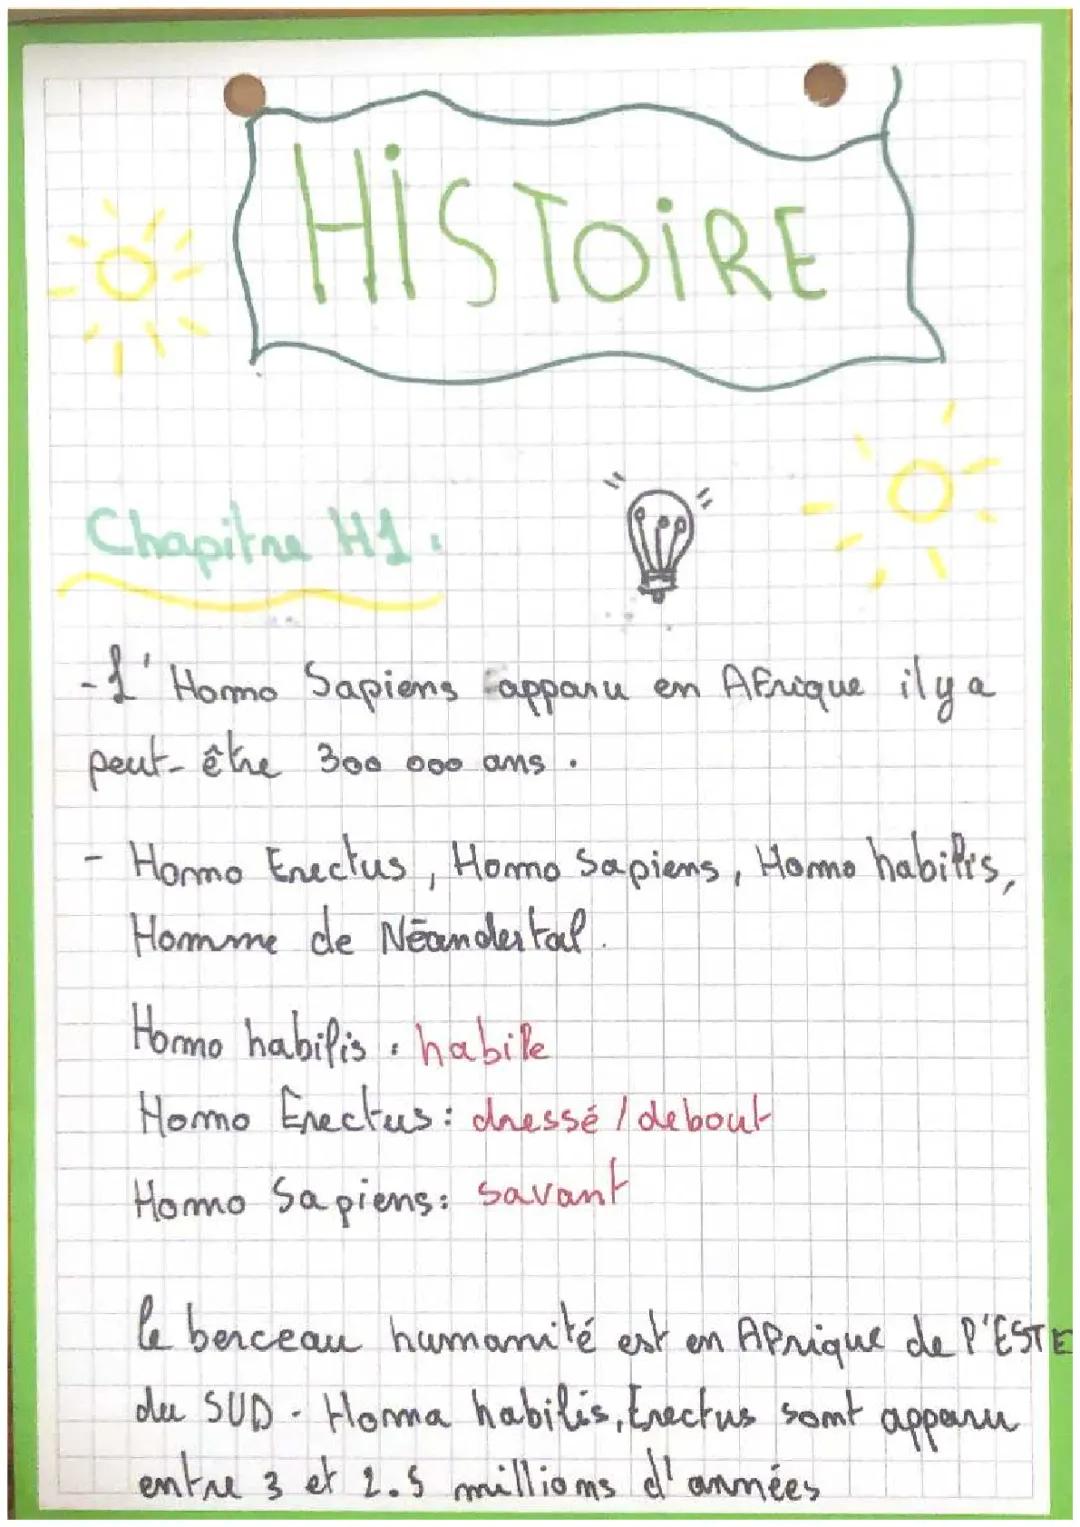 HiSTOiRE
Chapitre H1 :
- L'Homo Sapiens apparu en AFrique il y a
peut-être 300 000 ans .
- Homo Erectus , Homo Sapiens , Homo habilis,
Homme de Néandertal .
Homo habilis : habile
Homo Erectus : dressé / debout
Homo Sapiens : savant
le berceau humanité est en AFrique de l'EST E
du SUD . Homa habilis, Erectus sont apparu
entre 3 et 2.5 millions d'années